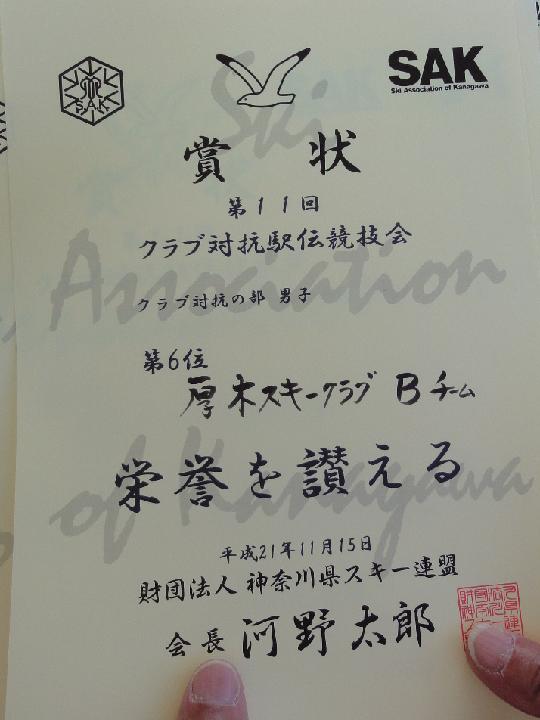 SAK
Ski Association of Kanagawa
賞状
第11回
クラブ対抗駅伝競技会
クラブ対抗の部 男子
第6位
厚木スキークラブ Bチーム
栄誉を讃える
平成21年11月15日
財団法人 神奈川県スキー連盟
会長 河野太郎
Ski
Association
of Kanagawa